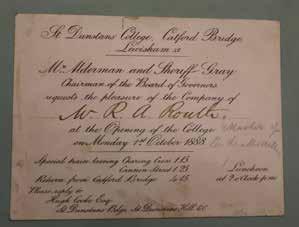 St Dunstans College, Catford Bridge,
Lewisham
Mr Alderman and Sheriff Gray
Chairman of the Board of Governors
requests the pleasure of the Company of
Mr. R. A. Routh
at the Opening of the College
on Monday 1st October 1888
Special train leaving Charing Cross 1.15
Cannon Street 1.25
Return from Catford Bridge 4.45
Luncheon
at 2 o'clock p.m.
Please reply to
Hugh Cooke Esq.
St Dunstans Bdgs, St Dunstans Hill E.C.